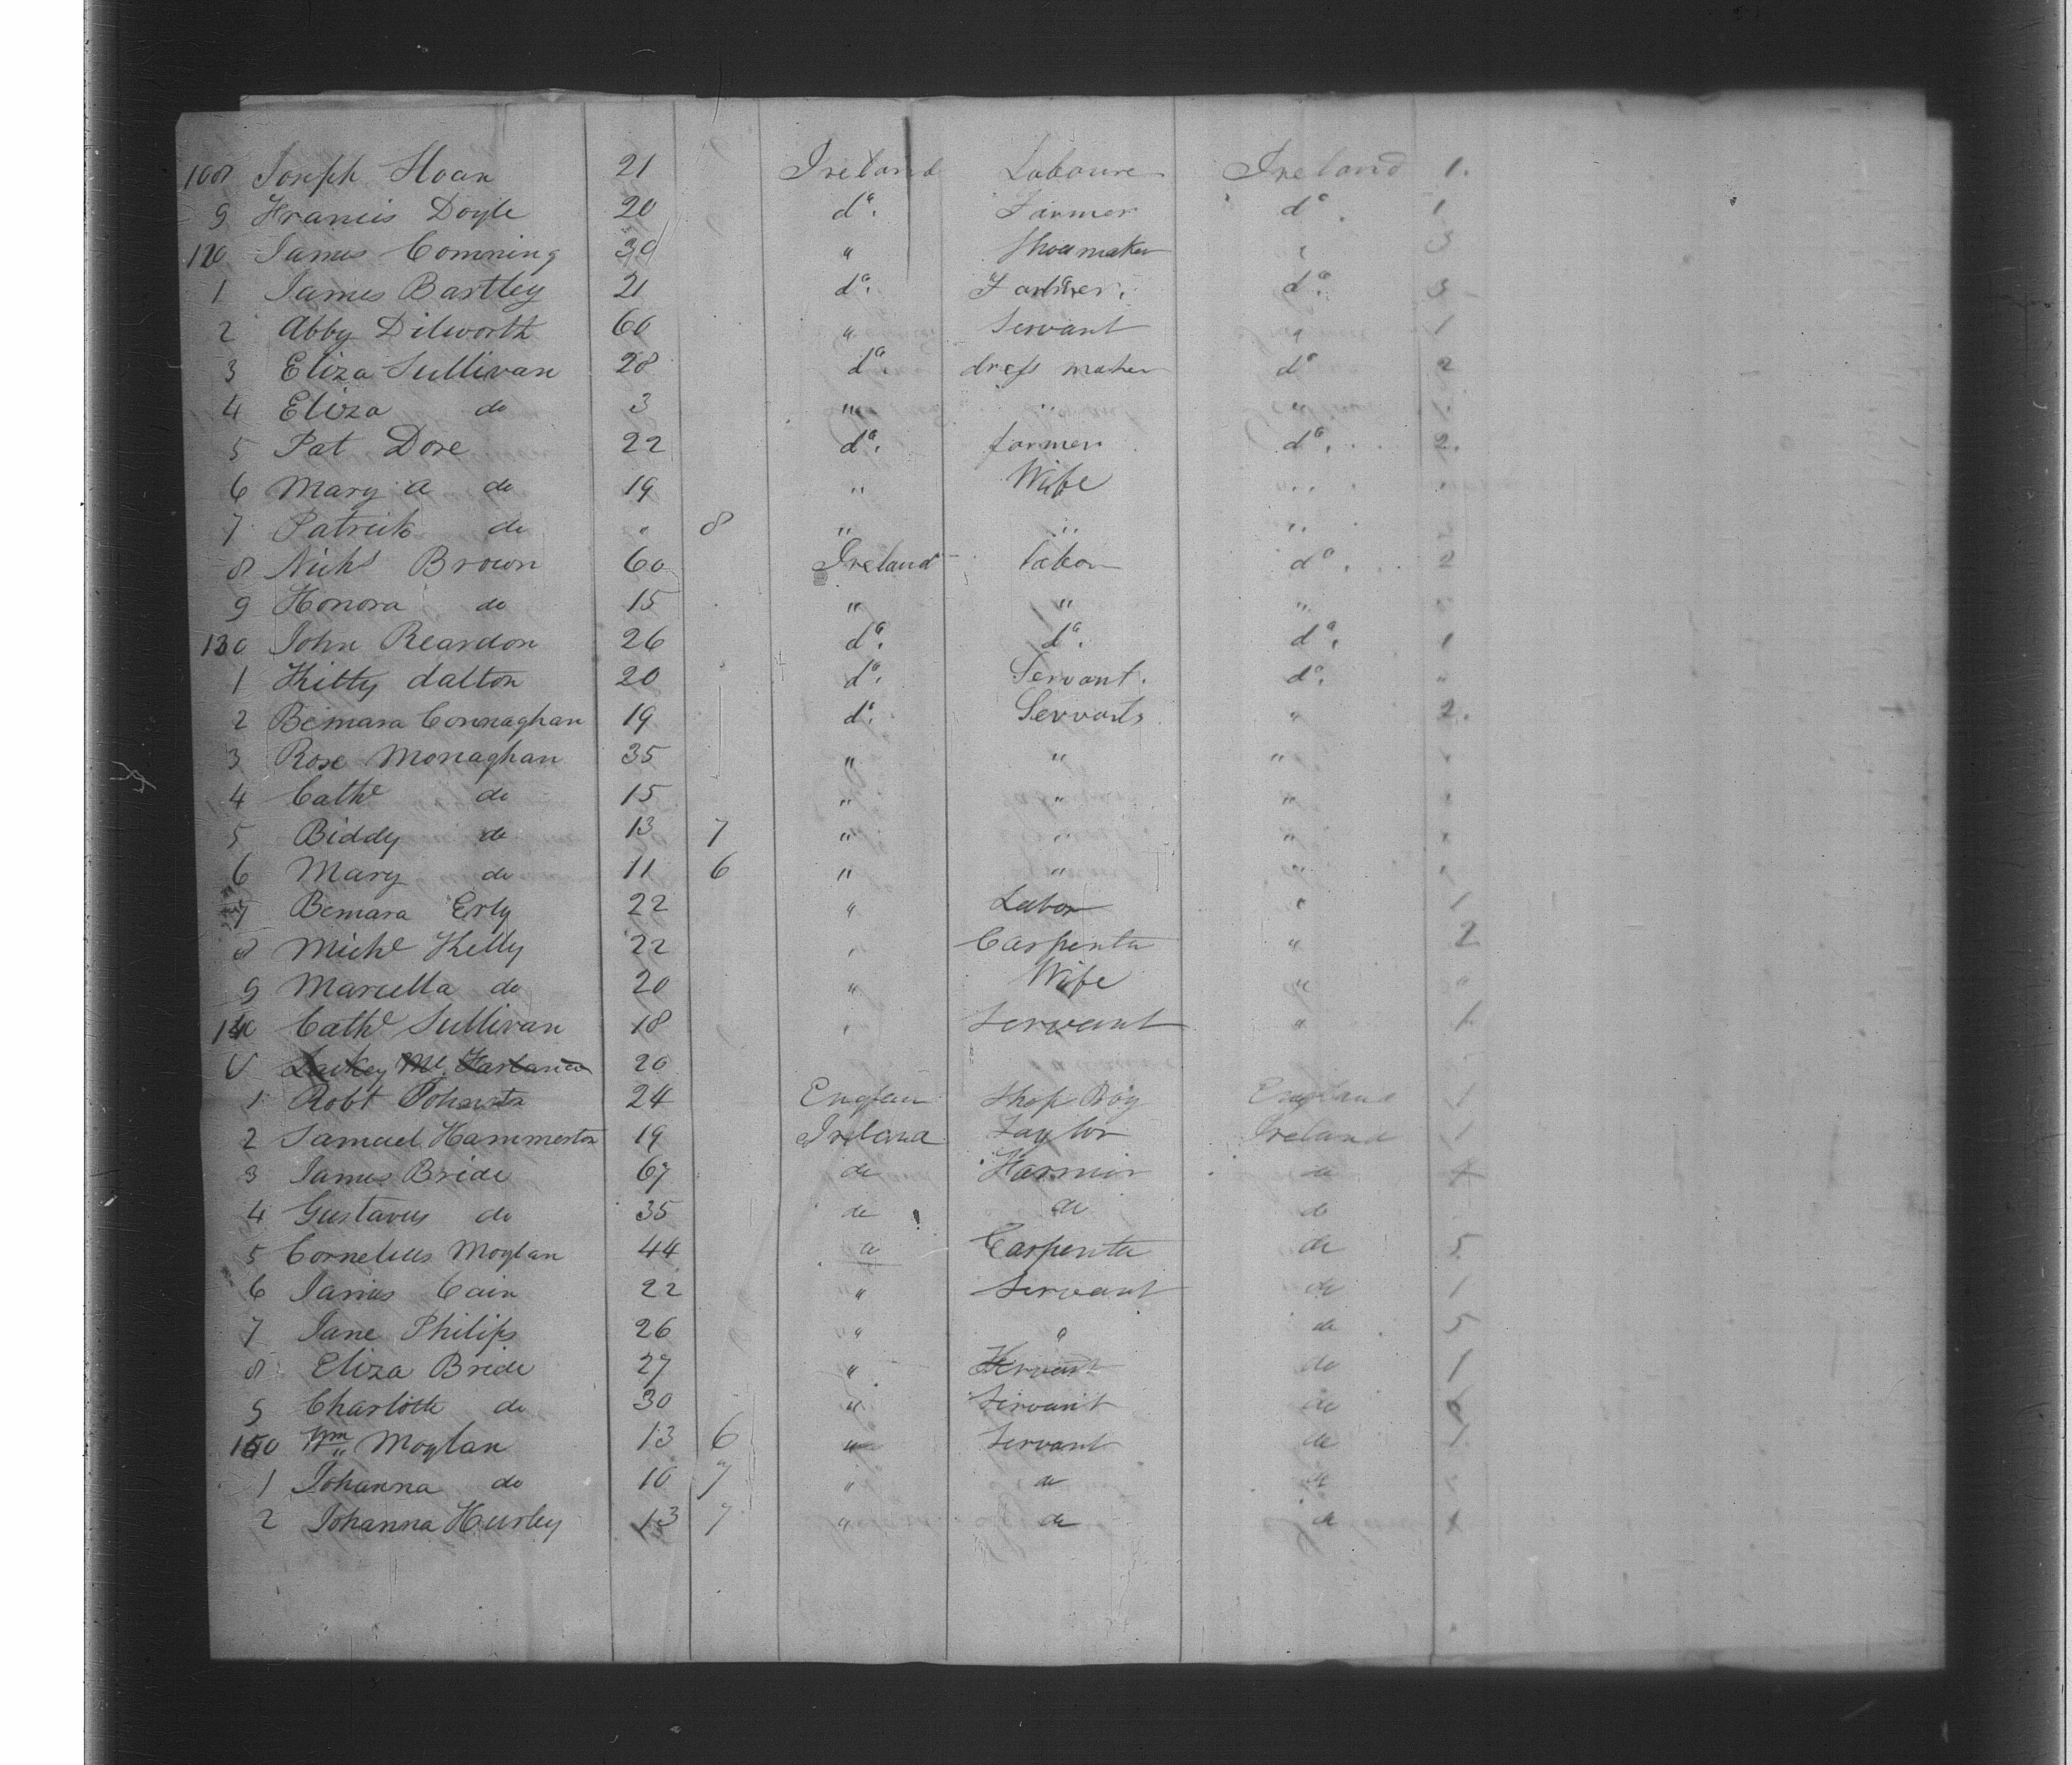 108 Joseph Hoan 21 Ireland Laboure Ireland 1.
9 Francis Doyle 20 do. Farmer do. 1
120 James Comming 30 " Shoemaker " 3
1 James Bartley 21 do. Farmer. do. 3
2 Abby Dilworth 60 " Servant " 1
3 Eliza Sullivan 28 do. dress maker do 2
4 Eliza do 3 " " " 1.
5 Pat Dore 22 do. farmer do. 2.
6 Mary A do 19 " Wife "
7 Patrick do " 8 " " "
8 Nichs Brown 60 Ireland Labor do. 2
9 Honora do 15 " " "
130 John Reardon 26 do. do. do. 1
1 Kitty dalton 20 do. Servant. do. "
2 Bemara Connaghan 19 do. Servants " 2.
3 Rose Monaghan 35 " " " "
4 Cathe do 15 " " " "
5 Biddy do 13 7 " " " "
6 Mary do 11 6 " " " "
7 Bemara Erly 22 " Labor " 1
8 Michl Kelly 22 " Carpenter " 2
9 Marcella do 20 " Wife " "
140 Cathe Sullivan 18 " Servant " 1.
Mc 20
1 Robt Johnstn 24 Englan Shop Boy England 1
2 Samuel Hammerston 19 Ireland Taylor Ireland 1
3 James Bride 67 do Farmir do
4 Gustavus do 35 do do do
5 Cornelius Moylan 44 do Carpenter do 5
6 James Cain 22 " Servant do 1
7 Jane Philips 26 " " do 5
8 Eliza Bride 27 " Servant do 1
9 Charlotte do 30 " Servant do
150 Wm Moylan 13 6 " Servant do 1
1 Johanna do 10 7 " do do
2 Johanna Hurley 13 7 " do do